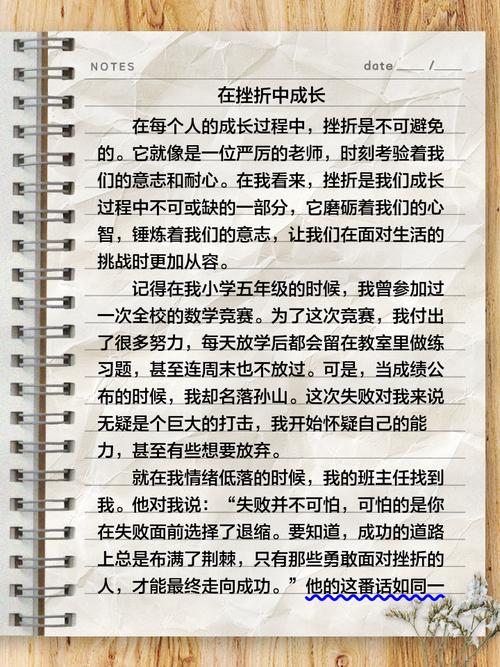 NOTES
date____ /____
在挫折中成长
在每个人的成长过程中，挫折是不可避免
的。它就像是一位严厉的老师，时刻考验着我
们的意志和耐心。在我看来，挫折是我们成长
过程中不可或缺的一部分，它磨砺着我们的心
智，锤炼着我们的意志，让我们在面对生活的
挑战时更加从容。
记得在我小学五年级的时候，我曾参加过
一次全校的数学竞赛。为了这次竞赛，我付出
了很多努力，每天放学后都会留在教室里做练
习题，甚至连周末也不放过。可是，当成绩公
布的时候，我却名落孙山。这次失败对我来说
无疑是个巨大的打击，我开始怀疑自己的能
力，甚至有些想要放弃。
就在我情绪低落的时候，我的班主任找到
我。他对我说：“失败并不可怕，可怕的是你
在失败面前选择了退缩。要知道，成功的道路
上总是布满了荆棘，只有那些勇敢面对挫折的
人，才能最终走向成功。”他的这番话如同一